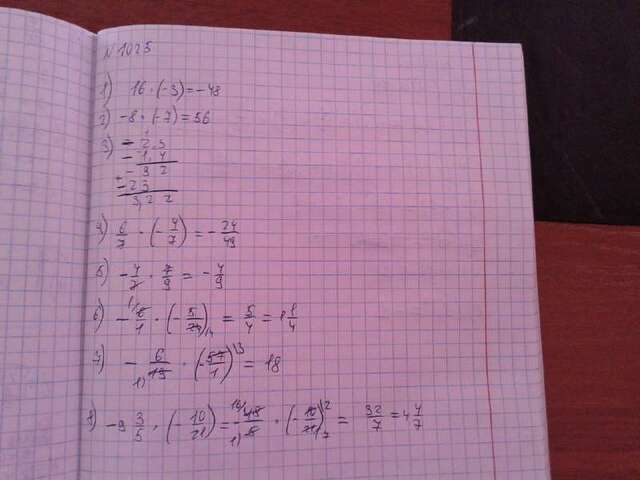 N 1025
1) 16 · (-3) = -48
2) -8 · (-7) = 56
3) - 2,3
- 1,4
- 9 2
- 23
3,2 2
4) 6/7 · (- 4/7) = - 24/49
5) - 4/7 · 7/9 = - 4/9
6) - 6/1 · (- 5/24) = 5/4 = 1 1/4
7) - 6/19 · (- 57/1) = 18
8) -9 3/5 · (- 10/21) = - 48/5 · (- 10/21) = 32/7 = 4 4/7